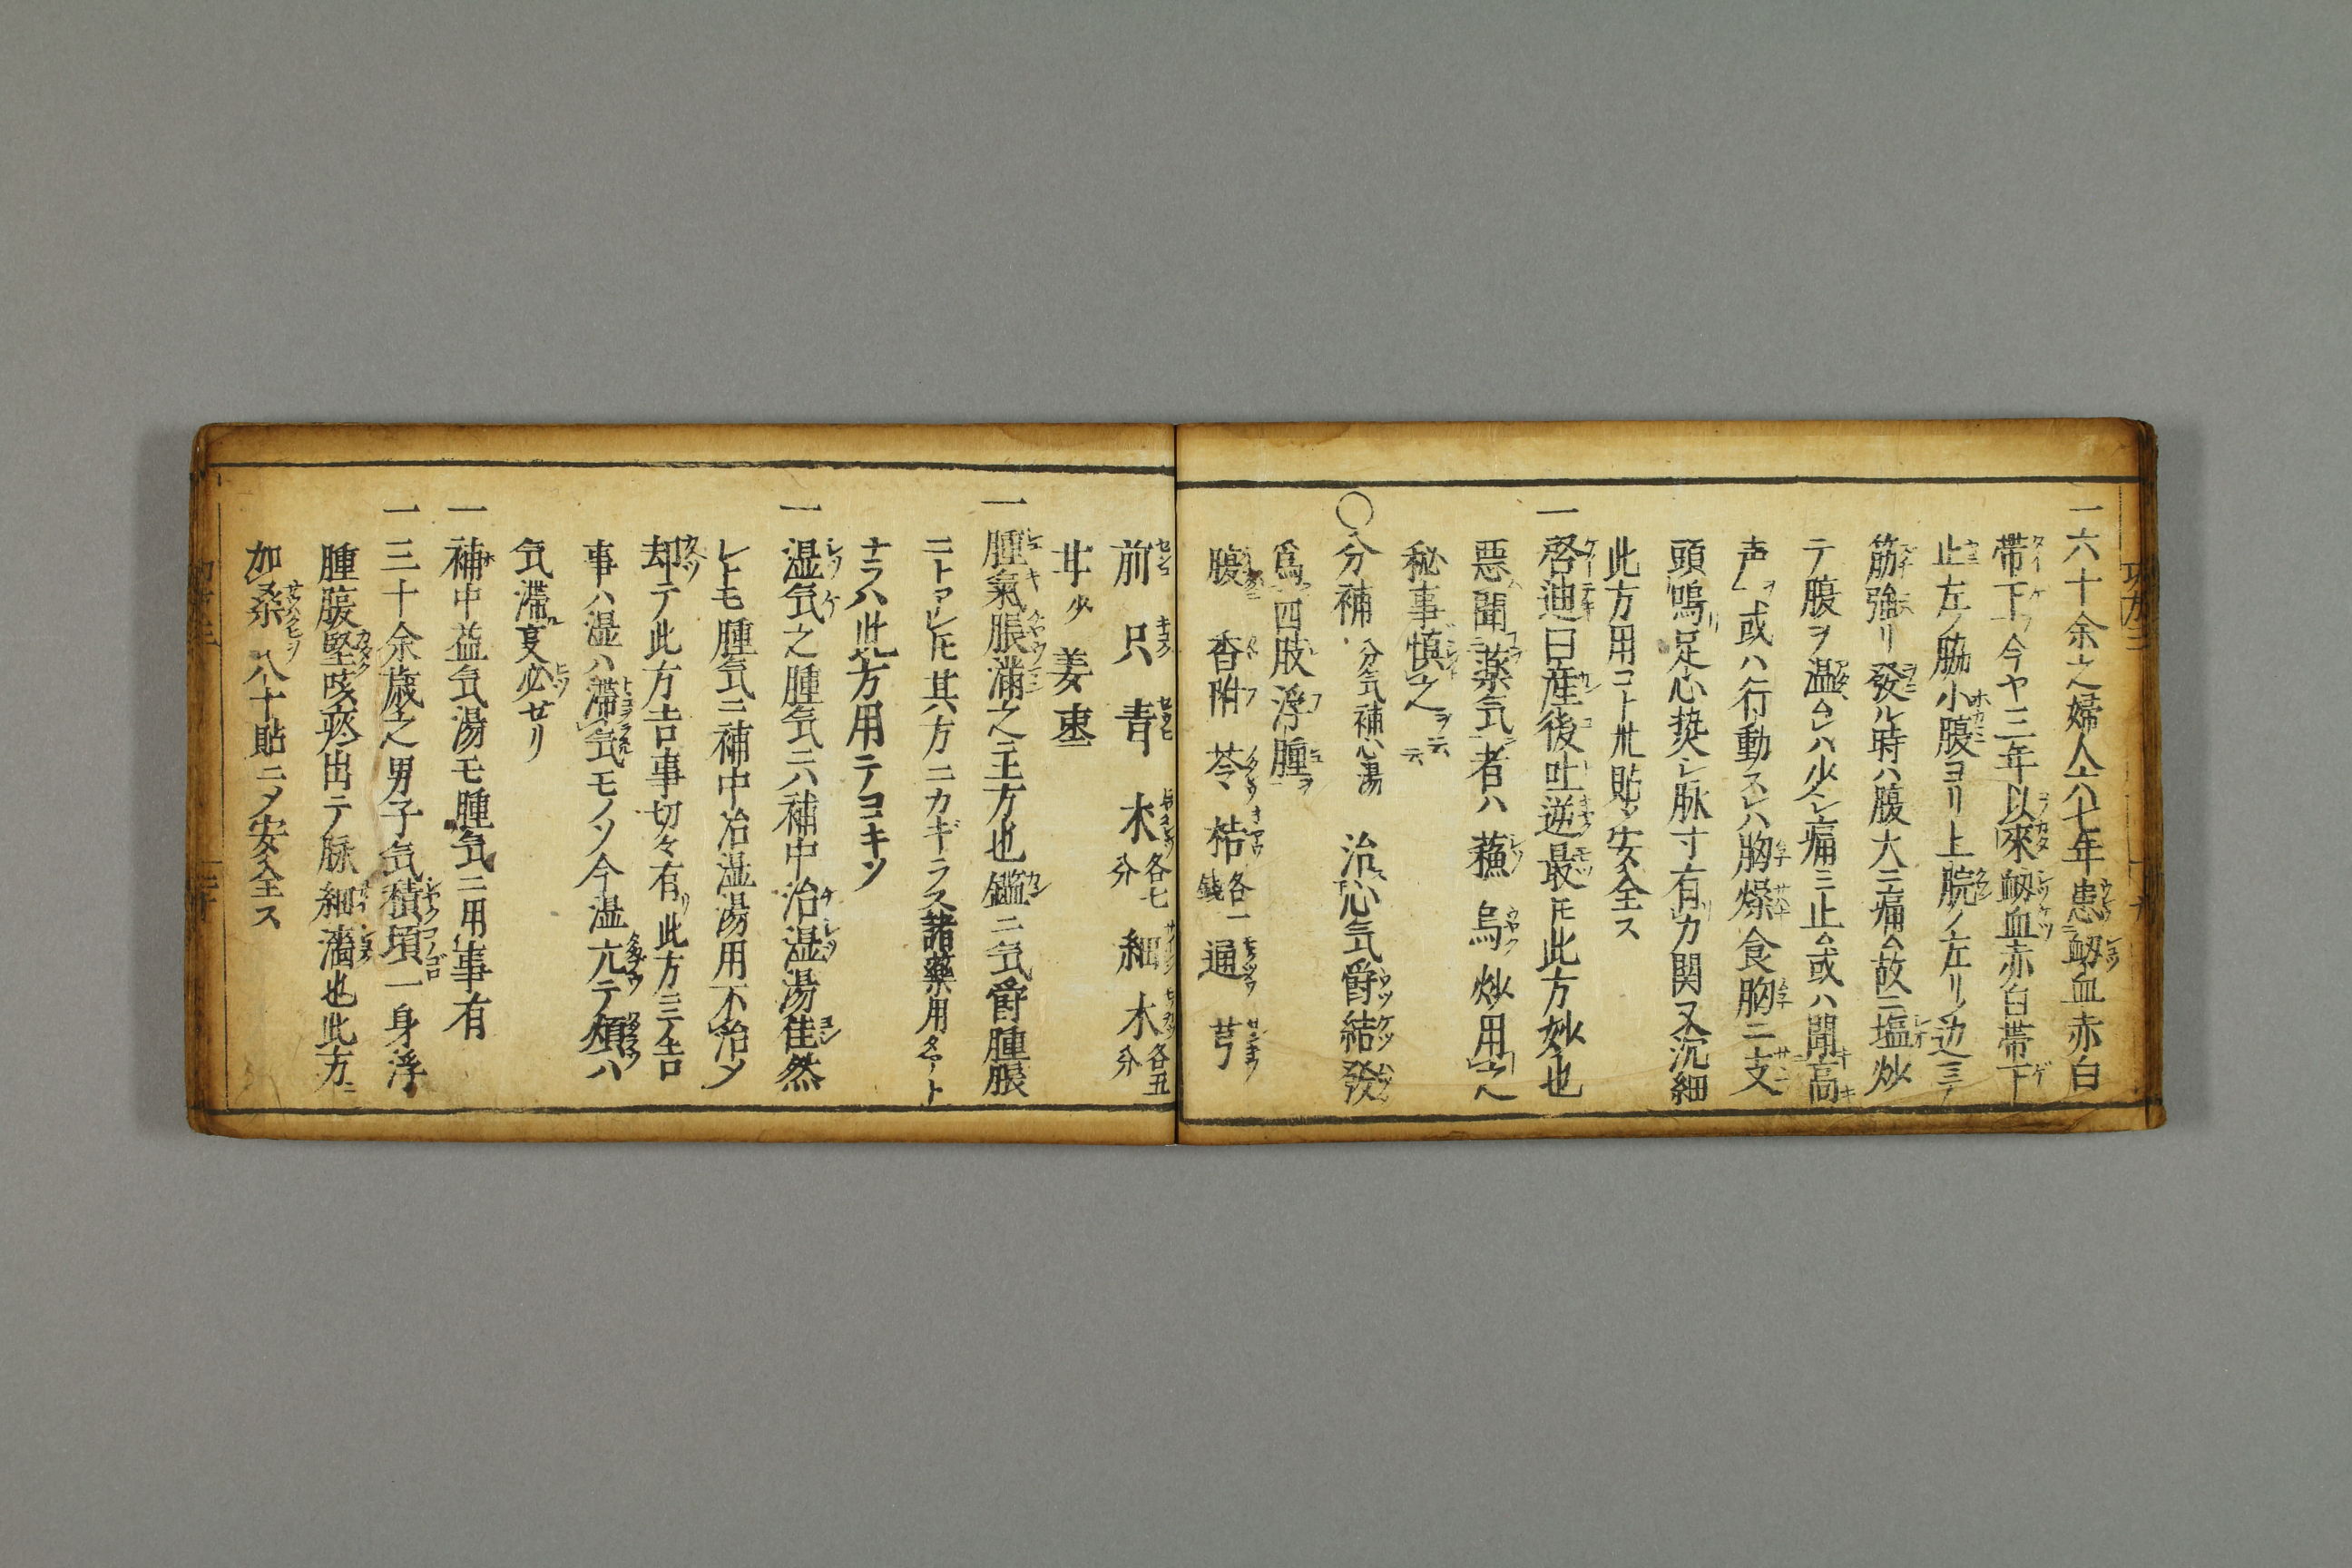 一六十余之婦人六七年患衂血赤白
帯下今ヤ三年以來衂血赤白帯下
止左ノ脇小腹ヨリ上脘ノ左リノ辺ニ
筋強リ發ル時ハ腹大ニ痛ム故ニ塩炒
テ腹ヲ温ムレハ少シ痛ミ止ム或ハ聞高
声ヲ或ハ行動スレハ胸燥食胸ニ支
頭鳴足心熱シ脉寸有力関又沉細
此方用コト廿貼〆安全ス
一啓迪曰産後吐逆最モ此方妙也
惡聞薬気者ハ蘓烏炒用之
秘事慎之云云
〇分補 分気補心湯 治心気欝結發
爲四肢浮腫
腹 香附 苓 桔各一錢 通 芎
前 只 青 朮各七分 細 木各五分
甘少 姜 棗
一腫氣脹滿之主方也鑑ニ気欝腫脹
ニトアレ𪜈其方ニカギラス諸藥用タマト
ナラハ此方用テヨキソ
一湿気之腫気ニハ補中治湿湯佳然
レトモ腫気ニ補中治湿湯用不治〆
却テ此方吉事切々有此方ニテ吉
事ハ湿ハ滞気モノソ今湿亢テ煩ハ
気滞叓必せリ
一補中益気湯モ腫気ニ用事有
一三十余歳之男子気積頃一身浮
腫腹堅咳痰出テ脉細濇也此方ニ
加桑 八十貼ニ〆安全ス